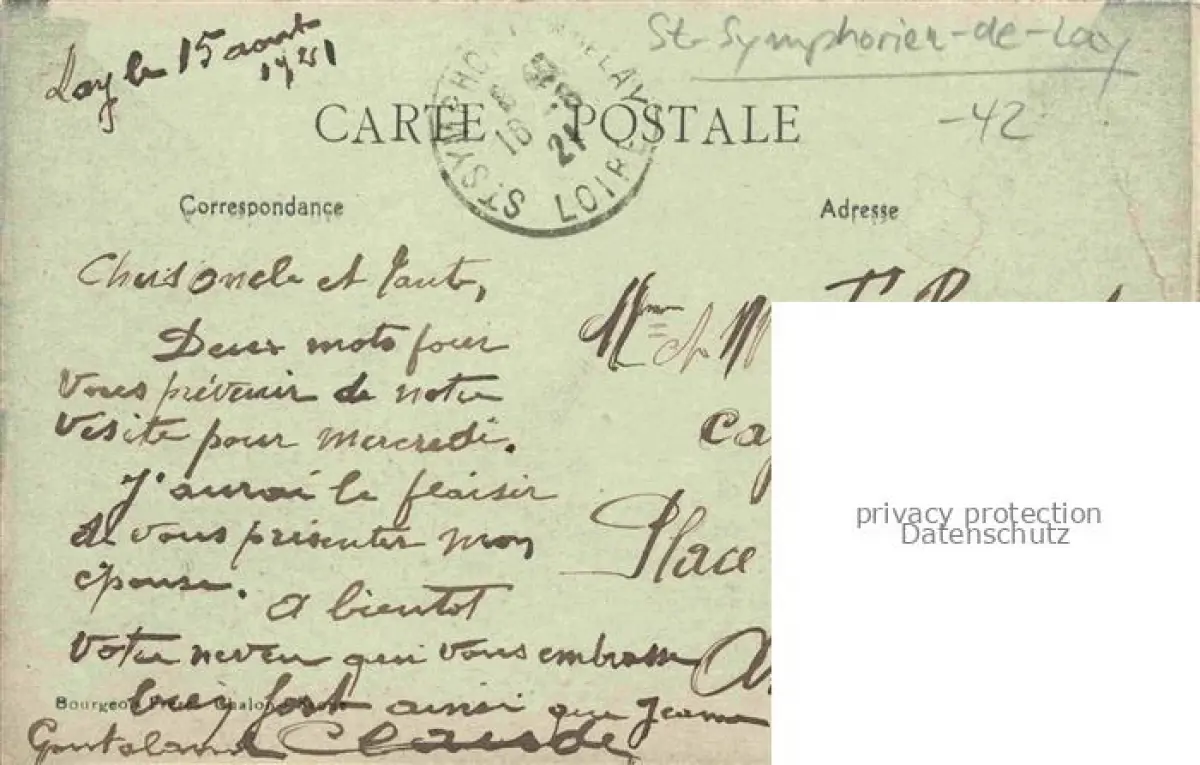 Lay le 15 aout
1921
St-Symphorien-de-Lay
-42
CARTE POSTALE
ST SYMPHORIEN DE LAY
16
21
LOIRE
Correspondance
Adresse
Chers Oncle et Tante,
Deux mots pour
vous prévenir de notre
visite pour mercredi.
J'aurai le plaisir
de vous présenter mon
épouse.
A bientot
Votre neveu qui vous embrasse
bien fort ainsi que Jeanne
Claude
Mme et M
Place
Bourgeois
privacy protection
Datenschutz